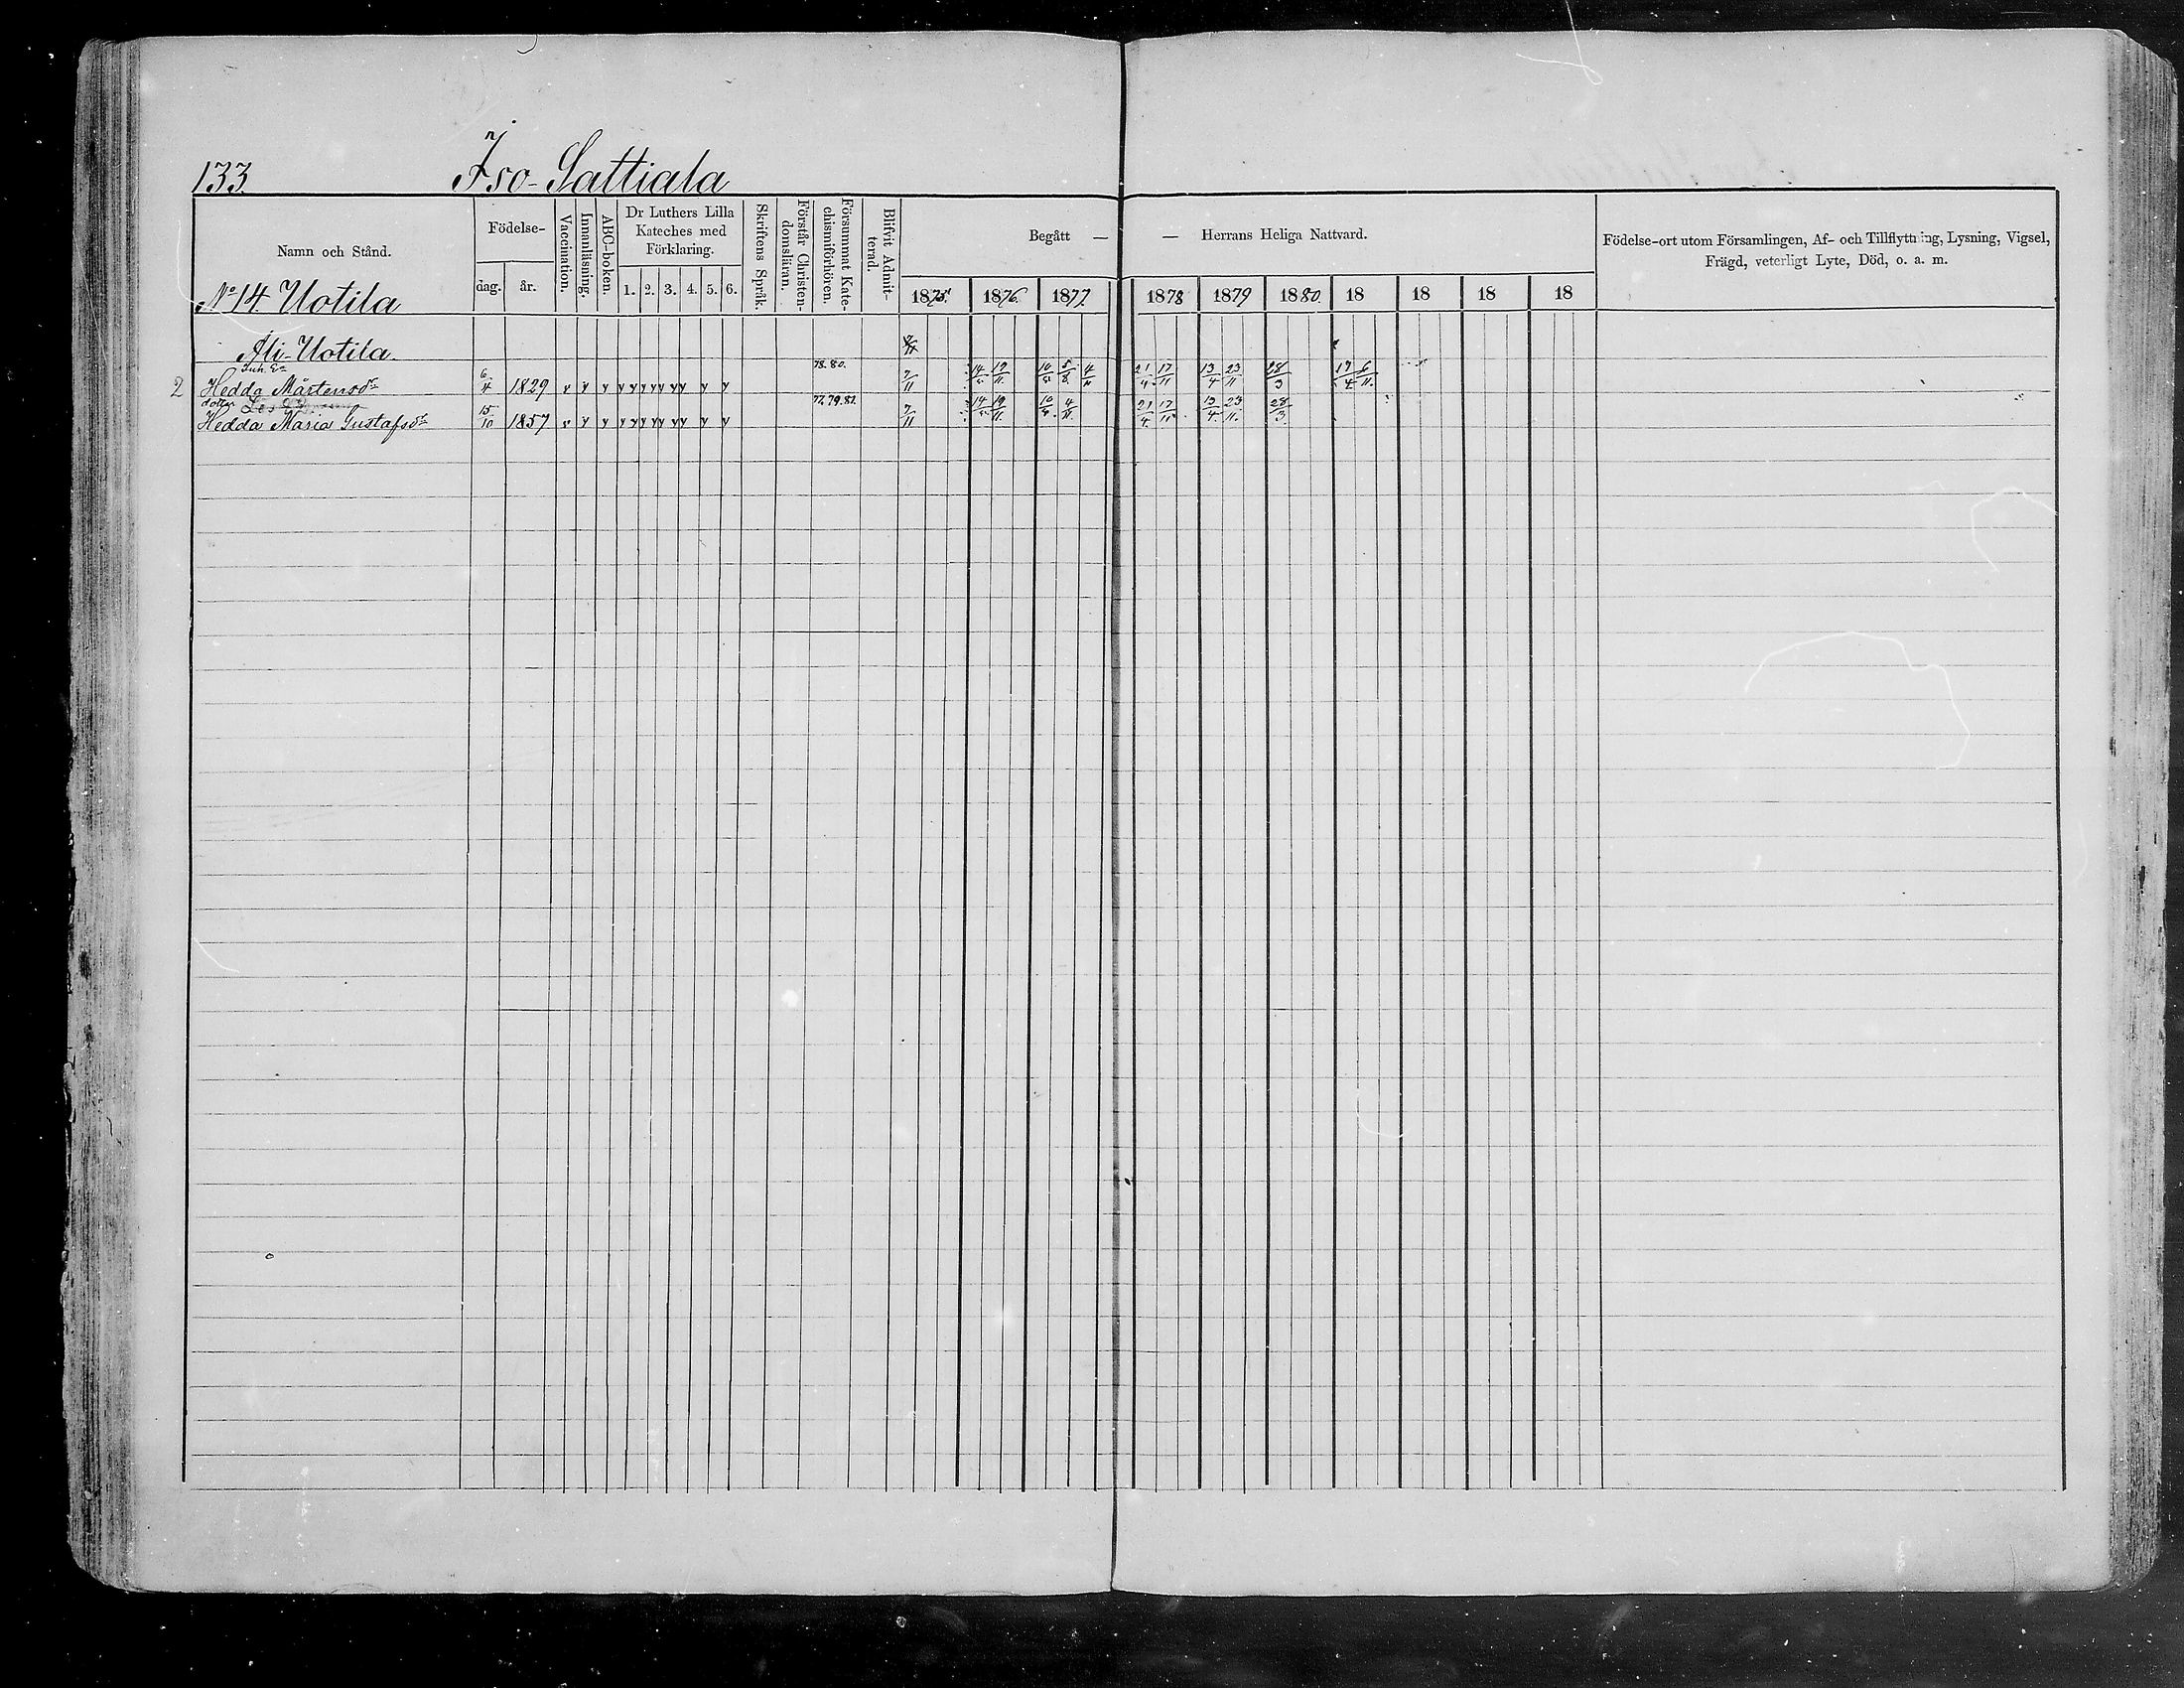 133. Iso-Sattiala
Namn och Stånd.
Födelse-
dag. år.
Vaccination.
Innanläsning.
ABC-boken.
Dr Luthers Lilla
Kateches med
Förklaring.
1. 2. 3. 4. 5. 6.
Skriftens Språk.
Förstår Christen-
domsläran.
Försummat Kate-
chismiförhören.
Blifvit Admit-
terad.
Begått — — Herrans Heliga Nattvard.
1875. 1876. 1877. 1878 1879 1880. 18 18 18 18
Födelse-ort utom Församlingen, Af- och Tillflyttning, Lysning, Vigsel,
Frägd, veterligt Lyte, Död, o. a. m.
No 14. Uotila
Ali-Uotila.
Inh. E:a 78. 80.
2 Hedda Mårtensdr 6/4 1829 v y y y y y y y y y y 7/11 19/11 10/5 5/8 4/11 21/4 17/11 13/4 23/11 28/3 17/4 6/11
dotter 77. 79. 81.
Hedda Maria Gustafsdr 15/10 1857 v y y y y y y y y y y 7/11 19/11 4/11 21/4 17/11 13/4 23/11 28/3